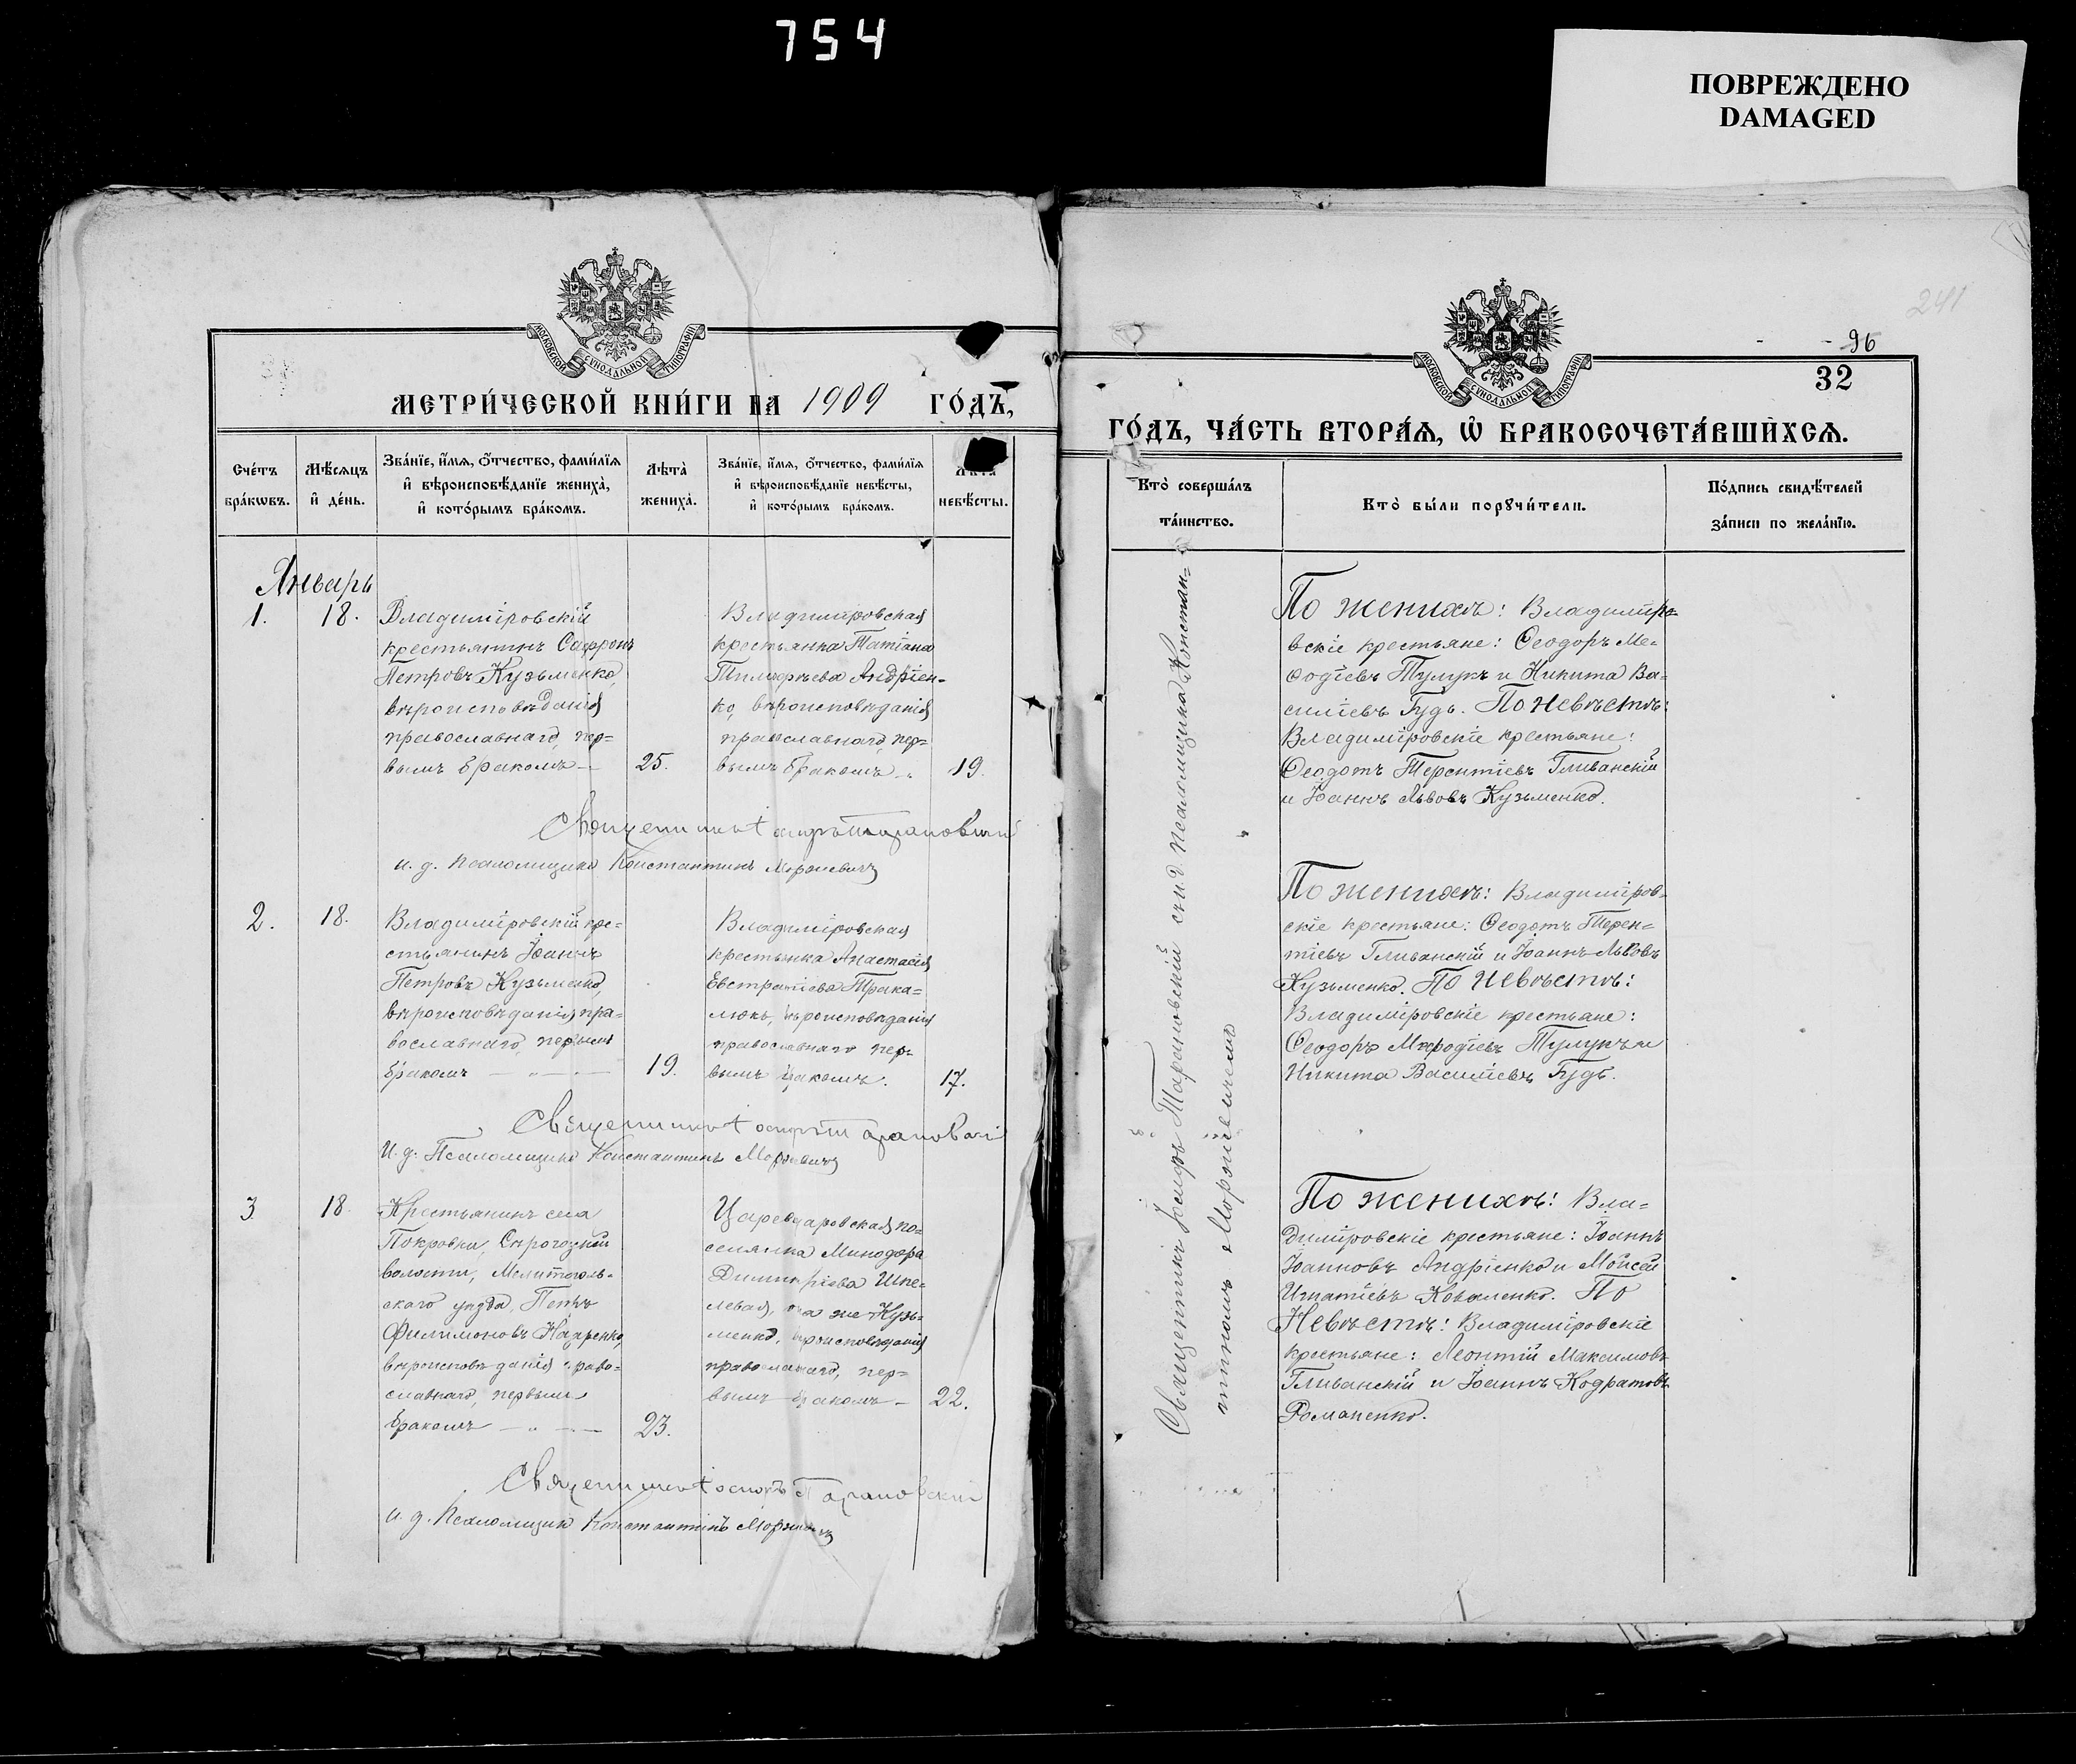 754
ПОВРЕЖДЕНО
DAMAGED
МОСКОВСКОЙ СѴНОДАЛЬНОЙ ТИПОГРАФІИ
МЕТРИ́ЧЕСКОЙ КНИ́ГИ НА 1909 ГО́ДЪ,
Сче́тъ бра́кѡвъ.
Мѣ́сяцъ и҆ де́нь.
Зва́нїе, и҆́мѧ, Ѻ҆́тчество, фами́лїѧ
и҆ вѣроисповѣ́данїе жениха̀,
и҆ кото́рымъ бра́комъ.
Лѣта̀
жениха̀.
Зва́нїе, и҆́мѧ, Ѻ҆́тчество, фами́лїѧ
и҆ вѣроисповѣ́данїе невѣ́сты,
и҆ кото́рымъ бра́комъ.
Лѣта̀
невѣ́сты.
Январь
1.
18.
Владимiровскiй
крестьянинъ Сафронъ
Петровъ Кузьменко,
вѣроисповѣданiя
православнаго, пер=
вымъ бракомъ —
25.
Владимiровская
крестьянка Татiана
Тимофѣева Андрiен-
ко, вѣроисповѣданiя
православнаго, пер=
вымъ бракомъ
19.
Священникъ Iосифъ Тарановскiй
и. д. Псаломщика Константинъ Моржевичъ
2.
18.
Владимiровскiй кре=
стьянинъ Iоаннъ
Петровъ Кузьменко,
вѣроисповѣданiя пра=
вославнаго, первымъ
бракомъ
19.
Владимiровская
крестьянка Анастасiя
Евстратiева Трака=
люкъ, вѣроисповѣданiя
православнаго пер-
вымъ бракомъ.
17.
Священникъ Iосифъ Тарановскiй
И. д. Псаломщика Константинъ Моржевичъ
3
18.
Крестьянинъ села
Покровки, Сѣрогозской
волости, Мелитополь=
скаго уѣзда, Петръ
Филимоновъ
вѣроисповѣданiя право=
славнаго, первымъ
бракомъ
23.
Царевдаровская по=
селянка Минодора
Димитрiева Шпе=
левая, она же Кузь=
менко, вѣроисповѣданiя
православнаго, пер=
вымъ бракомъ —
22.
Священникъ Iосифъ Тарановскiй
и. д. Псаломщика Константинъ Моржевичъ
241
96
32
МОСКОВСКОЙ СѴНОДАЛЬНОЙ ТИПОГРАФІИ
ГО́ДЪ, ЧА́СТЬ ВТОРА́Ѧ, Ѡ҆ БРАКОСОЧЕТА́ВШИХСѦ.
Кто̀ соверша́лъ
та́инство.
Кто̀ бы́ли порꙋчи́тели.
По́дпись свидѣ́телей
за́писи по жела́нїю.
Священникъ Iосифъ Тарановскiй с и. д. псаломщика Констан=
тиномъ Моржевичемъ
По женихѣ: Владимiро=
вскiе крестьяне: Ѳеодоръ Ме=
ѳодiевъ Тулупъ и Никита Ва=
силiевъ Гудь. По Невѣстѣ:
Владимiровскiе крестьяне:
Ѳеодотъ Терентiевъ Гливанскiй
и Iоаннъ Львовъ Кузьменко.
По женихѣ: Владимiров=
скiе крестьяне: Ѳеодотъ Терен=
тiевъ Гливанскiй и Iоаннъ Львовъ
Кузьменко. По Невѣстѣ:
Владимiровскiе крестьяне:
Ѳеодоръ Меѳодiевъ Тулупъ и
Никита Василiевъ Гудь.
По женихѣ: Вла=
димiровскiе крестьяне: Iоаннъ
Iоанновъ Андрiенко и Мойсей
Игнатiевъ Коваленко. По
Невѣстѣ: Владимiровскiе
крестьяне: Леонтiй Максимовъ
Гливанскiй и Iоаннъ Кодратовъ
Романенко.